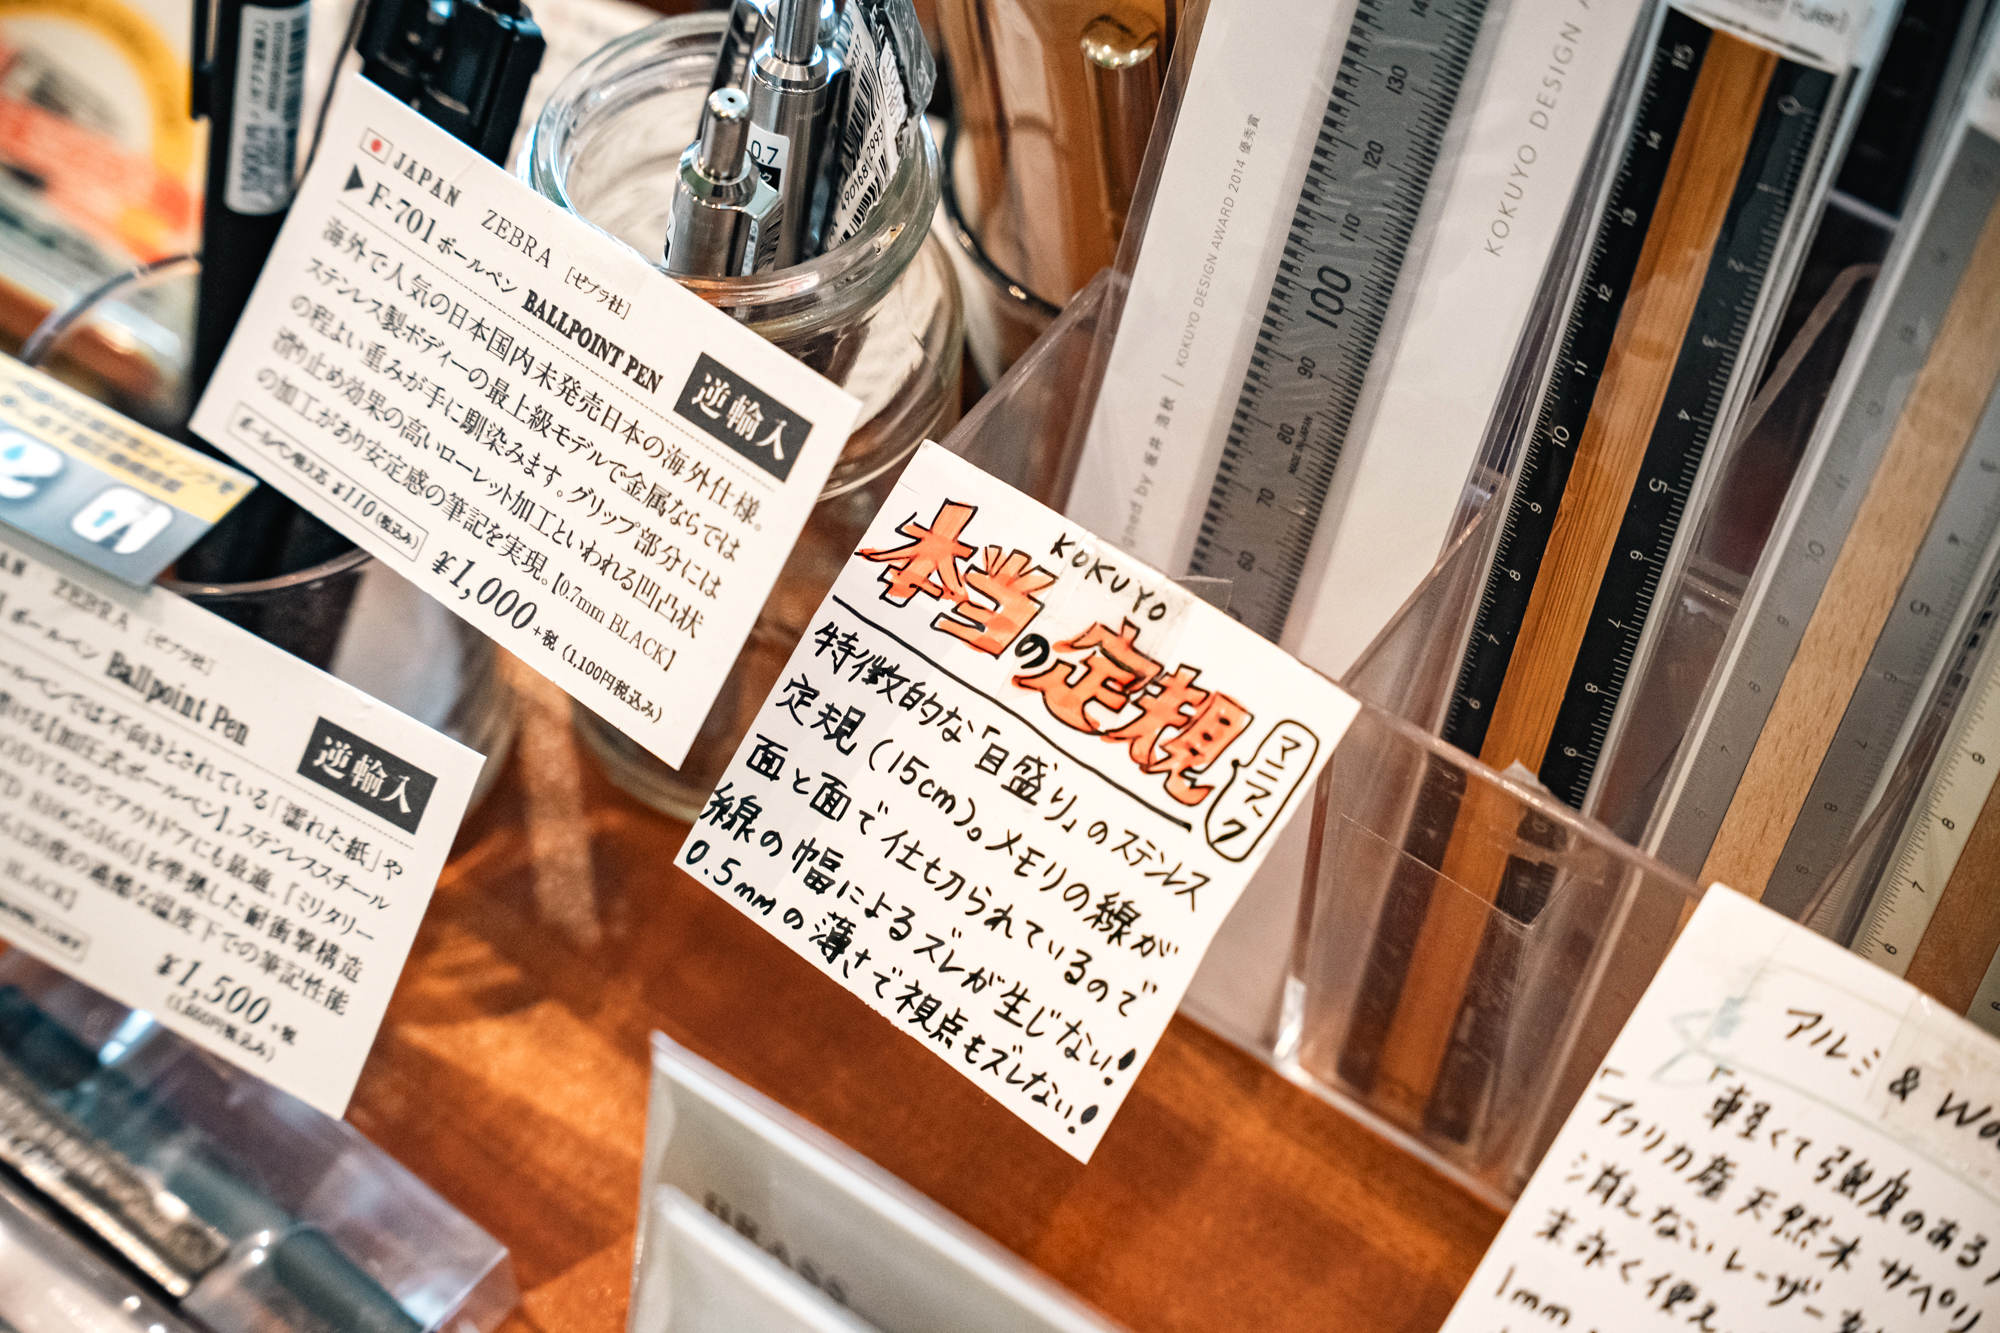 JAPAN ZEBRA [ゼブラ社]
▶F-701 ボールペン BALLPOINT PEN
逆輸入
海外で人気の日本国内未発売日本の海外仕様。
ステンレス製ボディーの最上級モデルで金属ならでは
の程よい重みが手に馴染みます。グリップ部分には
滑り止め効果の高いローレット加工といわれる凹凸状
の加工があり安定感の筆記を実現。[0.7mm BLACK]
ボールペン替え芯 ¥110 (税込み)
¥1,000+税 (1,100円税込み)
ZEBRA [ゼブラ社]
ボールペン Ballpoint Pen
逆輸入
ボールペンでは不向きとされている「濡れた紙」や
書ける【加圧式ボールペン】。ステンレススチール
BODYなのでアウトドアにも最適。『ミリタリー
を準拠した耐衝撃構造
の過酷な温度下での筆記性能
BLACK]
¥1,500+税
(1,650円税込み)
KOKUYO
本当の定規
マニアック
特徴的な「目盛り」のステンレス
定規(15cm)。メモリの線が
面と面で仕切られているので
線の幅によるズレが生じない!
0.5mmの薄さで視点もズレない!
アルミ & Wo
「軽くて強度のある
アフリカ産天然木サペリ
消えないレーザー
末永く使え
1mm
KOKUYO DESIGN AWARD 2014 優秀賞
KOKUYO DESIGN A
MADE IN JAPAN
60
70
80
90
100
110
120
130
0.7
BRASS
15
14
13
12
11
10
9
8
7
6
0
1
2
3
4
5
6